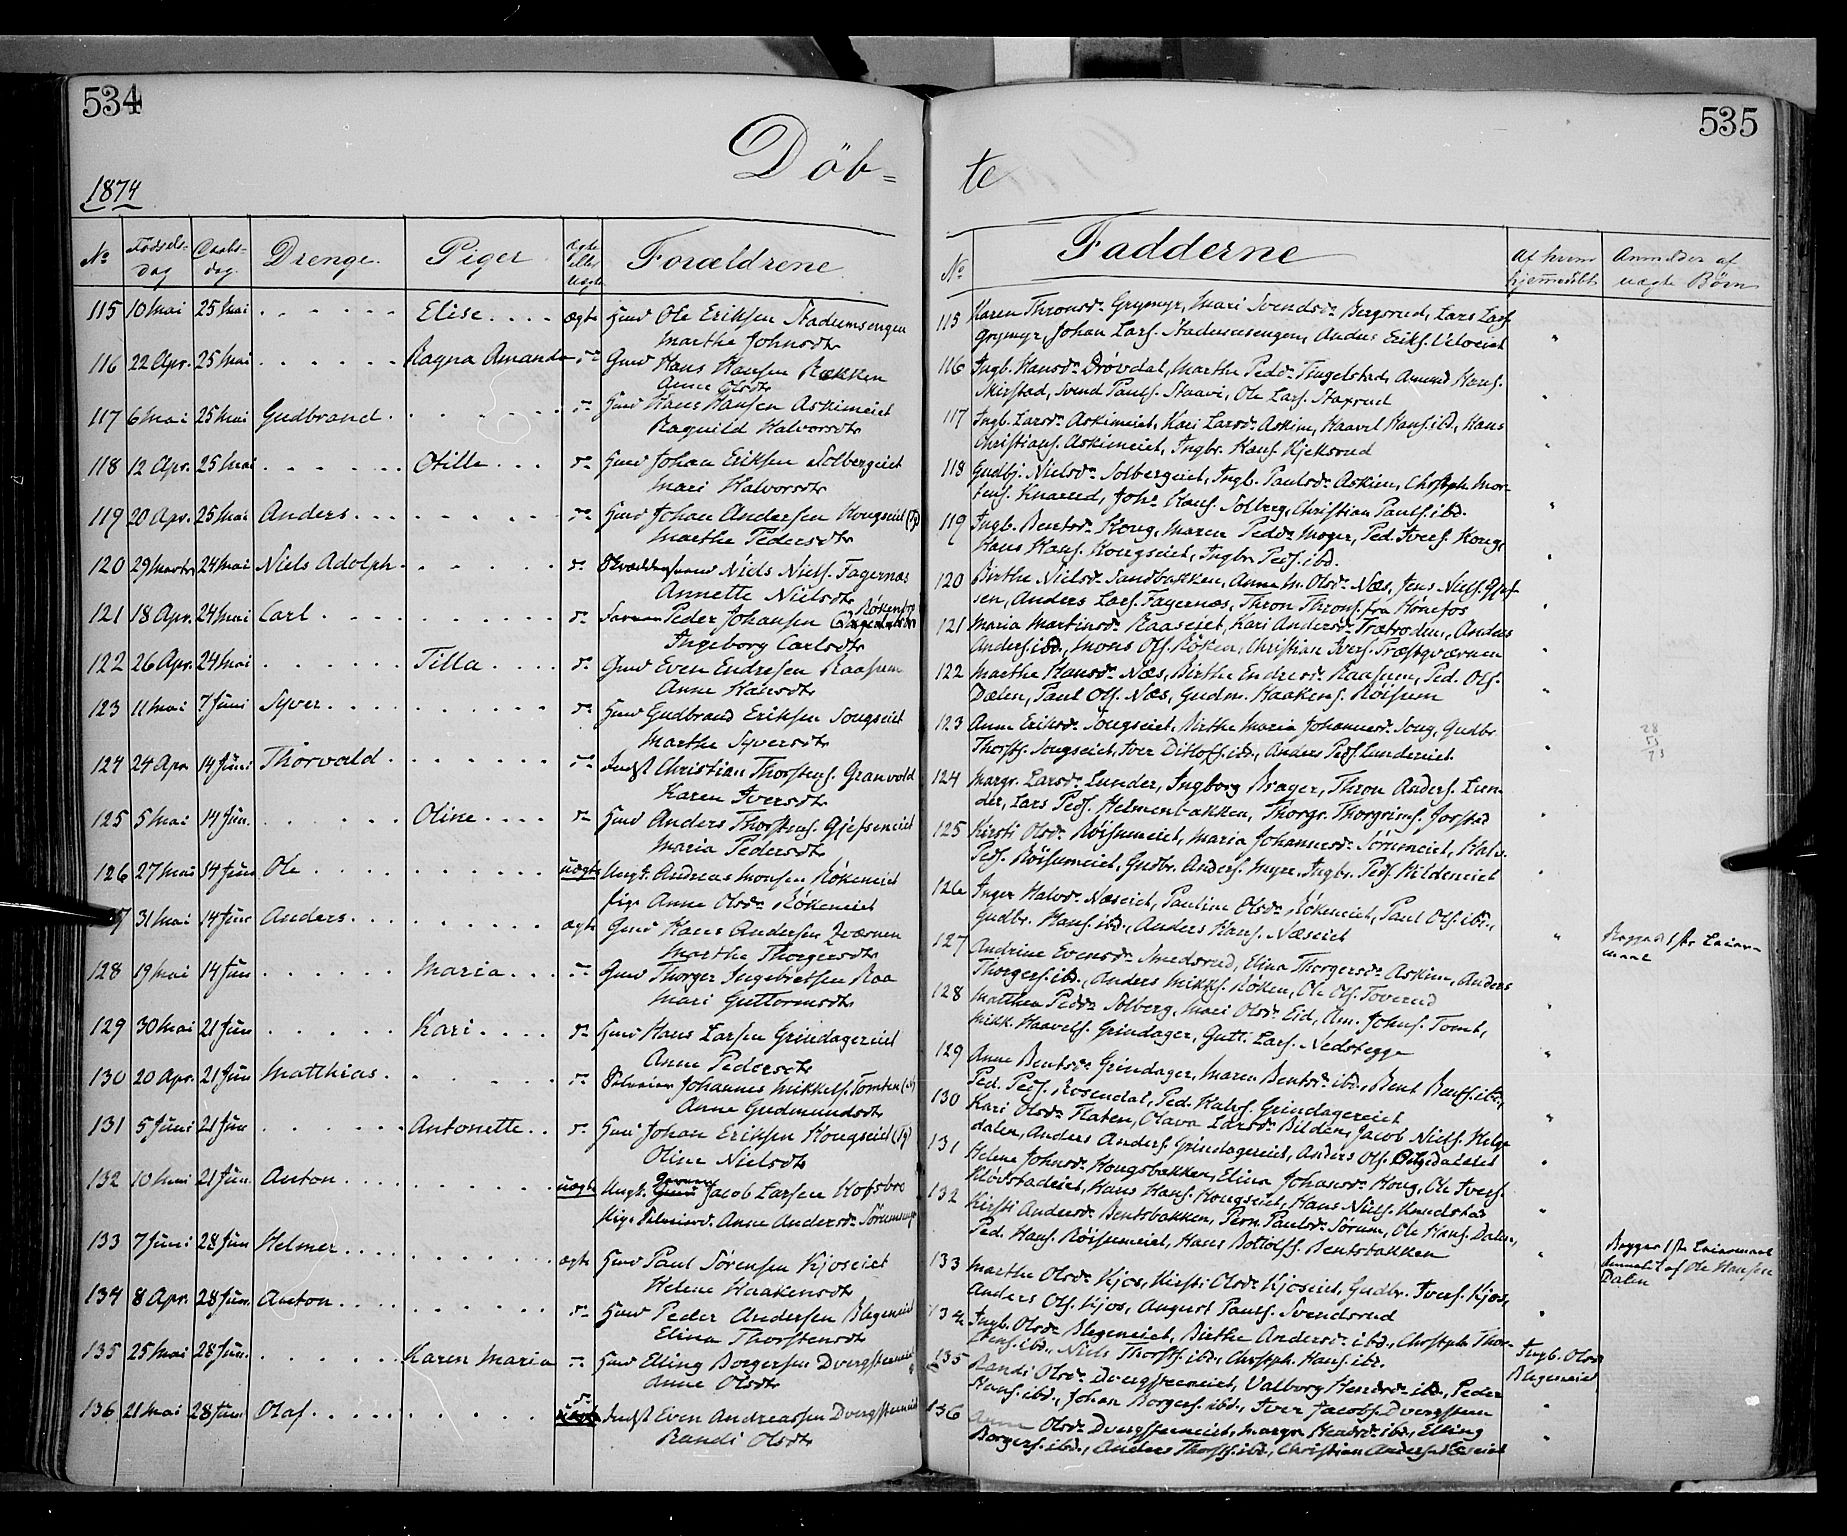 534
Döb=
1874
No Fødsels-dag Daabs-dag Drenge Piger Ægte eller Uægte Forældrene
115 10 Mai 25 Mai Elise ægte Huusd Ole Eriksen Stadumsengen
Marthe Johnsdtr
116 22 Apr. 25 Mai Ragna Amanda do Gmd Hans Hansen Rækken
Anne Olsdtr
117 6 Mai 25 Mai Gudbrand do Hans Hansen Askimeiet
Ragnild Halvorsdtr
118 12 Apr. 25 Mai Otille do Johan Eriksen Solbergeiet
Mari Halvorsdtr
119 20 Apr. 25 Mai Anders do Johan Andersen Kongseiet (Tg)
Marthe Pedersdtr
120 29 Marts 24 Mai Niels Adolph do Niels Niels. Fagernæs
Annette Nielsdtr
121 18 Apr. 24 Mai Carl do Peder Johansen
Ingeborg Carlsdtr
122 26 Apr. 24 Mai Tilla do Gmd Even Endresen Raassum
Anne Hansdtr
123 11 Mai 7 Juni Syver do Gudbrand Eriksen Sougseiet
Marthe Syversdtr
124 24 Apr. 14 Juni Thorvald do Indst Christian Thorstens. Granvold
Karen Iversdtr
125 5 Mai 14 Jun. Oline do Anders Thorstens. Gjefseneiet
Maria Pedersdtr
126 27 Mai 14 Juni Ole uægte Ungk. Andreas Monsen Røkeneiet
Pige Anne Olsdr Røkeneiet
127 31 Mai 14 Juni Anders ægte Gmd Hans Andersen Qværnen
Marthe Thorgersdtr
128 19 Mai 14 Jun Maria do Gmd Thorger Ingebretsen Raa
Mari Guttormsdtr
129 30 Mai 21 Jun Kari do Hans Larsen Grindagereiet
Anne Pedersdtr
130 20 Apr. 21 Jun Matthias do Johannes Mikkels. Tomten
Anne Gudmundsdtr
131 5 Juni 21 Jun Antonette do Johan Eriksen Kongseiet (Tg)
Oline Nielsdtr
132 10 21 Jun. Anton uægte Ungk. Jacob Larsen Hofsbro
Pige Anne Andersdr
133 7 Juni 28 Jun Helmer ægte Paul Sørensen Kjoseiet
Helene Haakensdtr
134 8 Apr. 28 Jun. Anton do Peder Andersen Blegeneiet
Elina Thorstensdtr
135 25 Mai 28 Jun. Karen Maria do Elling Borgersen Dvergsteneiet
Anne Olsdtr
136 21 Mai 28 Jun Olaf do Indst Even Andreassen Dvergsteneiet
Randi Olsdtr
535
te
No Fadderne Af hvem hjemmedøbt Anmelder af uægte Børn
115 Karen Thronsdr Grymyr, Mari Svendsdr Bergsrud, Lars Lars.
Grymyr, Johan Lars. Stadumsengen, Anders Eriks.
116 Ingb. Hansdr Drøvdal, Marthe Pedrr Tingelstad, Amund Hans.
Mirstad, Svend Pauls. Staavi, Ole Lars. Staxrud
117 Ingb. Larsdr Askimeiet, Kari Larsdr Askim, Haavel Hans. ibd, Hans
Christians. Askimeiet, Ingbr. Hans. Kjeksrud
118 Gudbj. Nielsdr Solbergeiet, Ingb. Paulsdr Askim, Chrstph. Mor-
tens. Knarud, Johs Hans. Solberg, Christian Pauls. ibd.
119 Ingb. Bentsdr Kong, Maren Pedrr Moger, Ped. Ivers. Kong,
Hans Hans. Kongseiet, Ingbr. Peds. ibd.
120 Birthe Nielsdr Sandbakken, Anne M. Olsdr Næs, Jens Niels. Gjef-
sen, Anders Lars. Fagernæs, Thron Throns. fra Hønefos
121 Maria Martinsdr Raaseiet, Kari Andersdr Trætroden, Anders
Anders. ibd., Mons Ols. Røken, Christian Ivers. Præstqværnen
122 Marthe Hansdr Næs, Birthe Endresdr Raassum, Ped. Ols.
Dælen, Paul Ols. Næs, Gudm. Haakens. Røisum
123 Anne Eriksdr Sougseiet, Birthe Maria Johannesdr Soug, Gudbr.
Thorsts. Sougseiet, Iver Ditlofs. ibd., Anders Peds. Lundereiet
124 Margr. Larsdr Lunder, Ingborg Brager, Thron Anders. Lun-
der, Lars Peds. Helmenbakken, Thorgr. Thorgrims. Jorstad
125 Kirsti Olsdr Røisumeiet, Maria Johannesdr Sørumeiet, Halv.
Peds. Røisumeiet, Gudbr. Anders. Myre, Ingbr. Peds. Hildeneiet
126 Inger Halvsdr Næseiet, Pauline Olsdr Røkeneiet, Paul Ols. ibd.,
Gudbr. Hans. ibd., Anders Hans. Næseiet
Begges 1ste Leier-
maal
127 Andrine Evensdr Smedsrud, Elina Thorgersdr Askim, Anders
Thorgers. ibd., Anders Mikks. Røken, Ole Ols. Toverud
128 Matthea Pedrr Solberg, Mari Olsdr Eid, Am. Johns. Tomt,
Mikk. Haavels. Grindager, Gutt. Lars. Nedstegge
129 Anne Bentsdr Grindager, Maren Bentsdr ibd., Bent Bents. ibd.,
Ped. Peds. Rosendal, Ped. Halvs. Grindagereiet
130 Kari Olsdr Flaten, Olava Larsdr Bilden, Jacob Niels. Helge
dalen, Anders Anders. Grindagereiet, Anders Ols.
131 Helene Johnsdr Kongsbakken, Elina Johansdr Kong, Ole Ivers.
Kløvstadeiet, Hans Hans. Kongseiet, Hans Niels.
132 Kirsti Andersdr Bentsbakken, Pern. Paulsdr Sørum, Ole Hans. Dalen,
Ped. Hans. Røisumeiet, Hans Bottolfs. Bentsbakken
Begges 1ste Leiermaal
Anmeldt af Ole Hansen
Dalen
133 Marthe Olsdr Kjos, Kirsti Olsdr Kjoseiet, Gudbr. Ivers. Kjos,
Anders Ols. Kjos, August Pauls. Svendsrud
134 Ingb. Olsdr Blegeneiet, Birthe Andersdr ibd., Chrstph. Thor-
stens. ibd., Niels Thorsts. ibd., Chrstph. Hans. ibd.
Ingb. Olsdr
Blegeneiet
135 Randi Olsdr Dvergsteneiet, Valborg Hendrsdr ibd., Peder
Hans. ibd., Johan Borgers. ibd., Iver Jacobs. Dvergsten
136 Anne Olsdr Dvergsteneiet, Margr. ibd., Elling
Borgers. ibd., Anders Thorsts. ibd., Christian Anders.